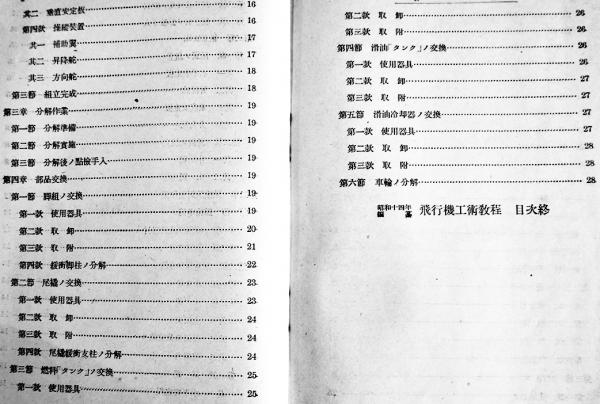 其二 垂直安定板 16
第四款 操縦装置 16
其一 補助翼 17
其二 昇降舵 17
其三 方向舵 18
第三節 組立完成 18
第三章 分解作業 19
第一節 分解準備 19
第二節 分解實施 19
第三節 分解後ノ點檢手入 19
第四章 部品交換 19
第一節 脚組ノ交換 19
第一款 使用器具 19
第二款 取卸 20
第三款 取附 21
第四款 緩衝脚柱ノ分解 22
第二節 尾橇ノ交換 23
第一款 使用器具 23
第二款 取卸 24
第三款 取附 24
第四款 尾橇緩衝支柱ノ分解 24
第三節 燃料「タンク」ノ交換 25
第一款 使用器具 25
第二款 取卸 26
第三款 取附 26
第四節 滑油「タンク」ノ交換 26
第一款 使用器具 26
第二款 取卸 27
第三款 取附 27
第五節 滑油冷却器ノ交換 27
第一款 使用器具 27
第二款 取卸 28
第三款 取附 28
第六節 車輪ノ分解 28
昭和十四年
飛行機工術教程 目次終